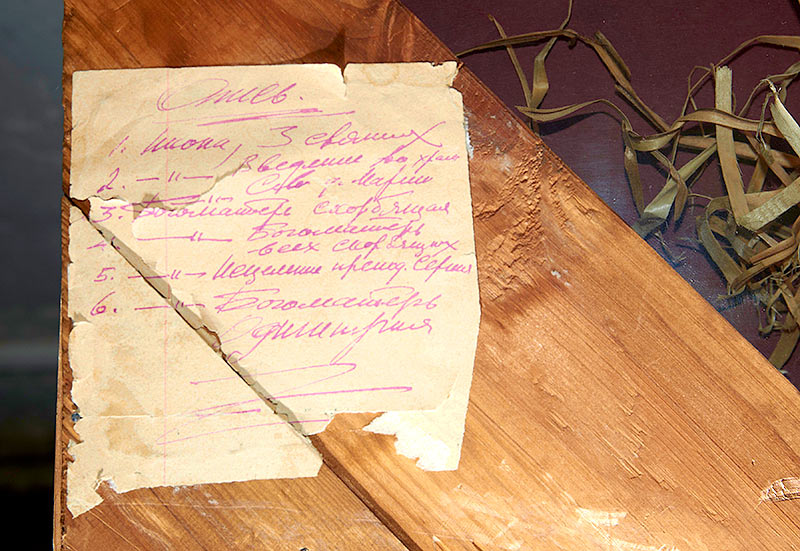 Опись.
1. Икона, 3 святых
Введение во храм
2. —"— Св. д. Марии
3. Богоматерь скорбящая
4. —"— Богоматерь
всех скорбящих
5. —"— Исцеление препод. Сергия
6. —"— Богоматерь
Одигитрия